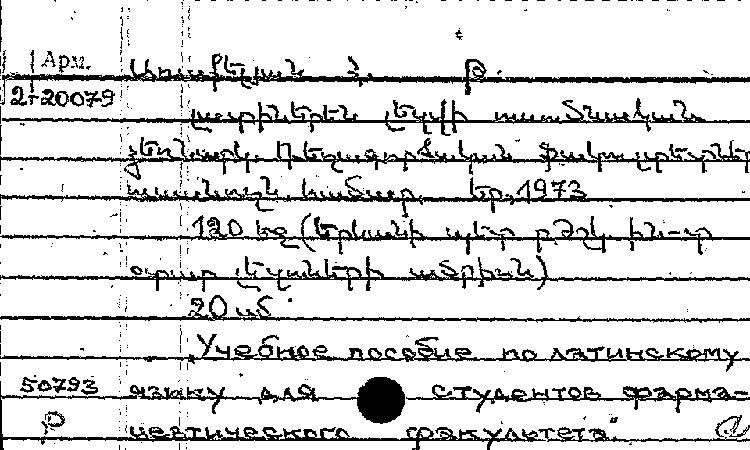 Арм.
Առաքելյան Հ. Թ.
2-20079
Լատիներեն լեզվի ուսումնական
ձեռնարկ. Դեղագործական ֆակուլտետի
ուսանողն. համար. Եր., 1973
120 էջ (Երևանի պետ. բժշկ. ին-տ
օտար լեզուների ամբիոն)
20 սմ
Учебное пособие по латинскому
50793 языку для студентов фарма-
цевтического факультета".